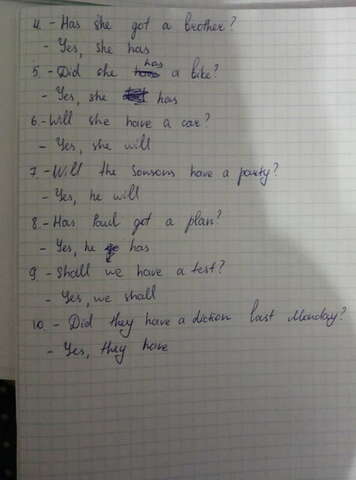 4. - Has she got a brother?
- Yes, she has
5. - Did she has a bike?
- Yes, she has
6. - Will she have a car?
- Yes, she will
7. - Will the Jonsons have a party?
- Yes, he will
8. - Has Paul got a plan?
- Yes, he has
9. - Shall we have a test?
- Yes, we shall
10. - Did they have a diction last Monday?
- Yes, they have